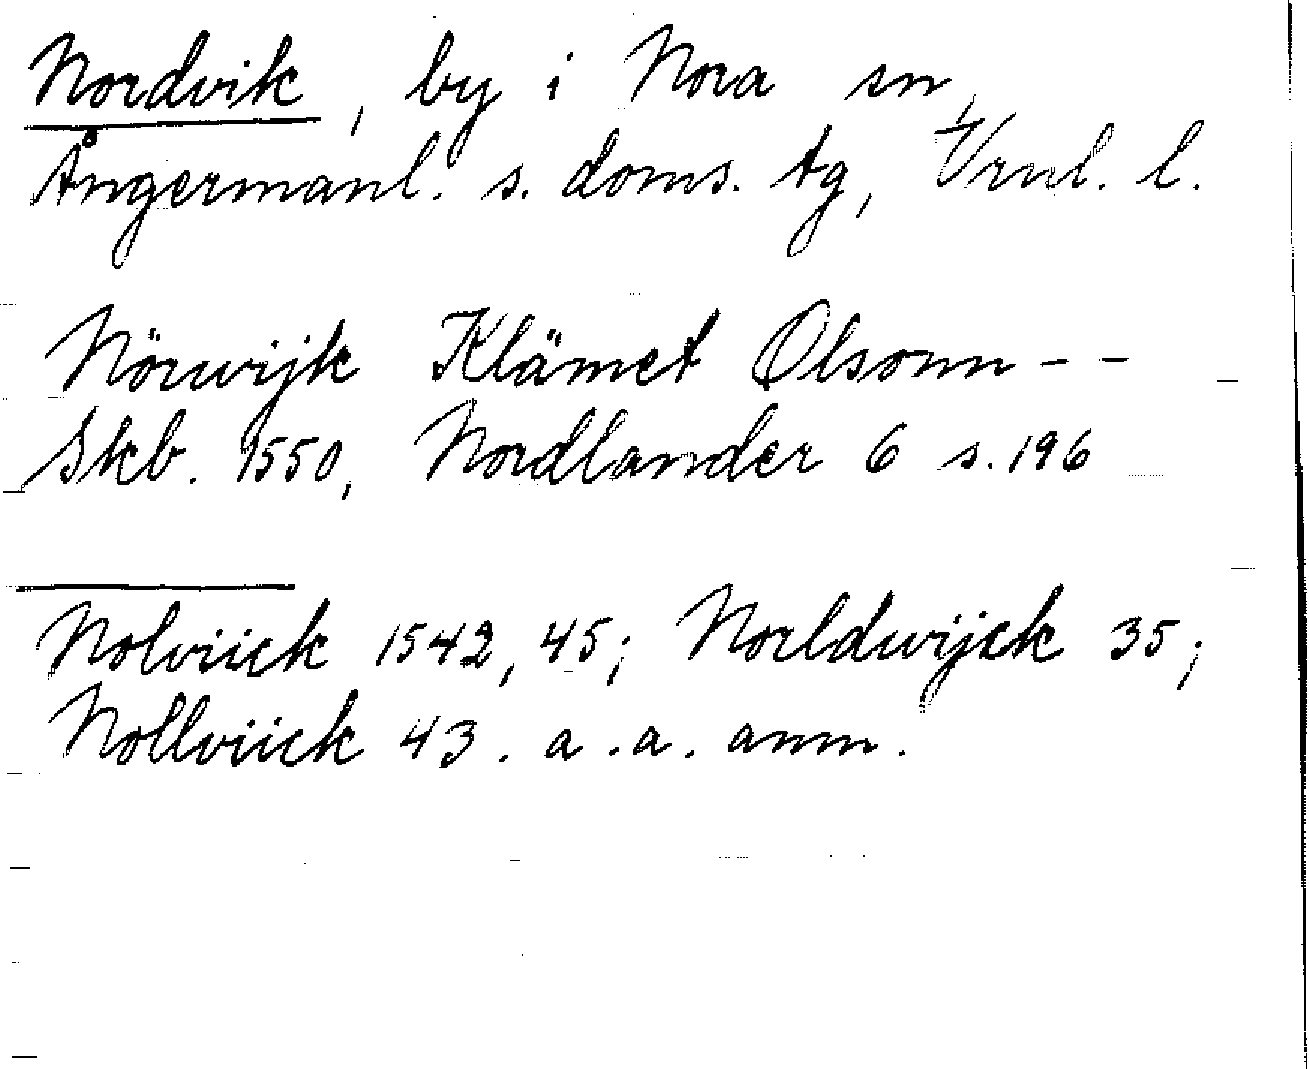 Nordvik, by i Nora sn,
Ångermanl. s. doms. tg, Vrnl. l.
Nörwijk Klämet Olsonn - -
Skb. 1550, Nordlander 6 s. 196
Nolviick 1542, 45; Norldwijck 35;
Nollviick 43. a. a. anm.